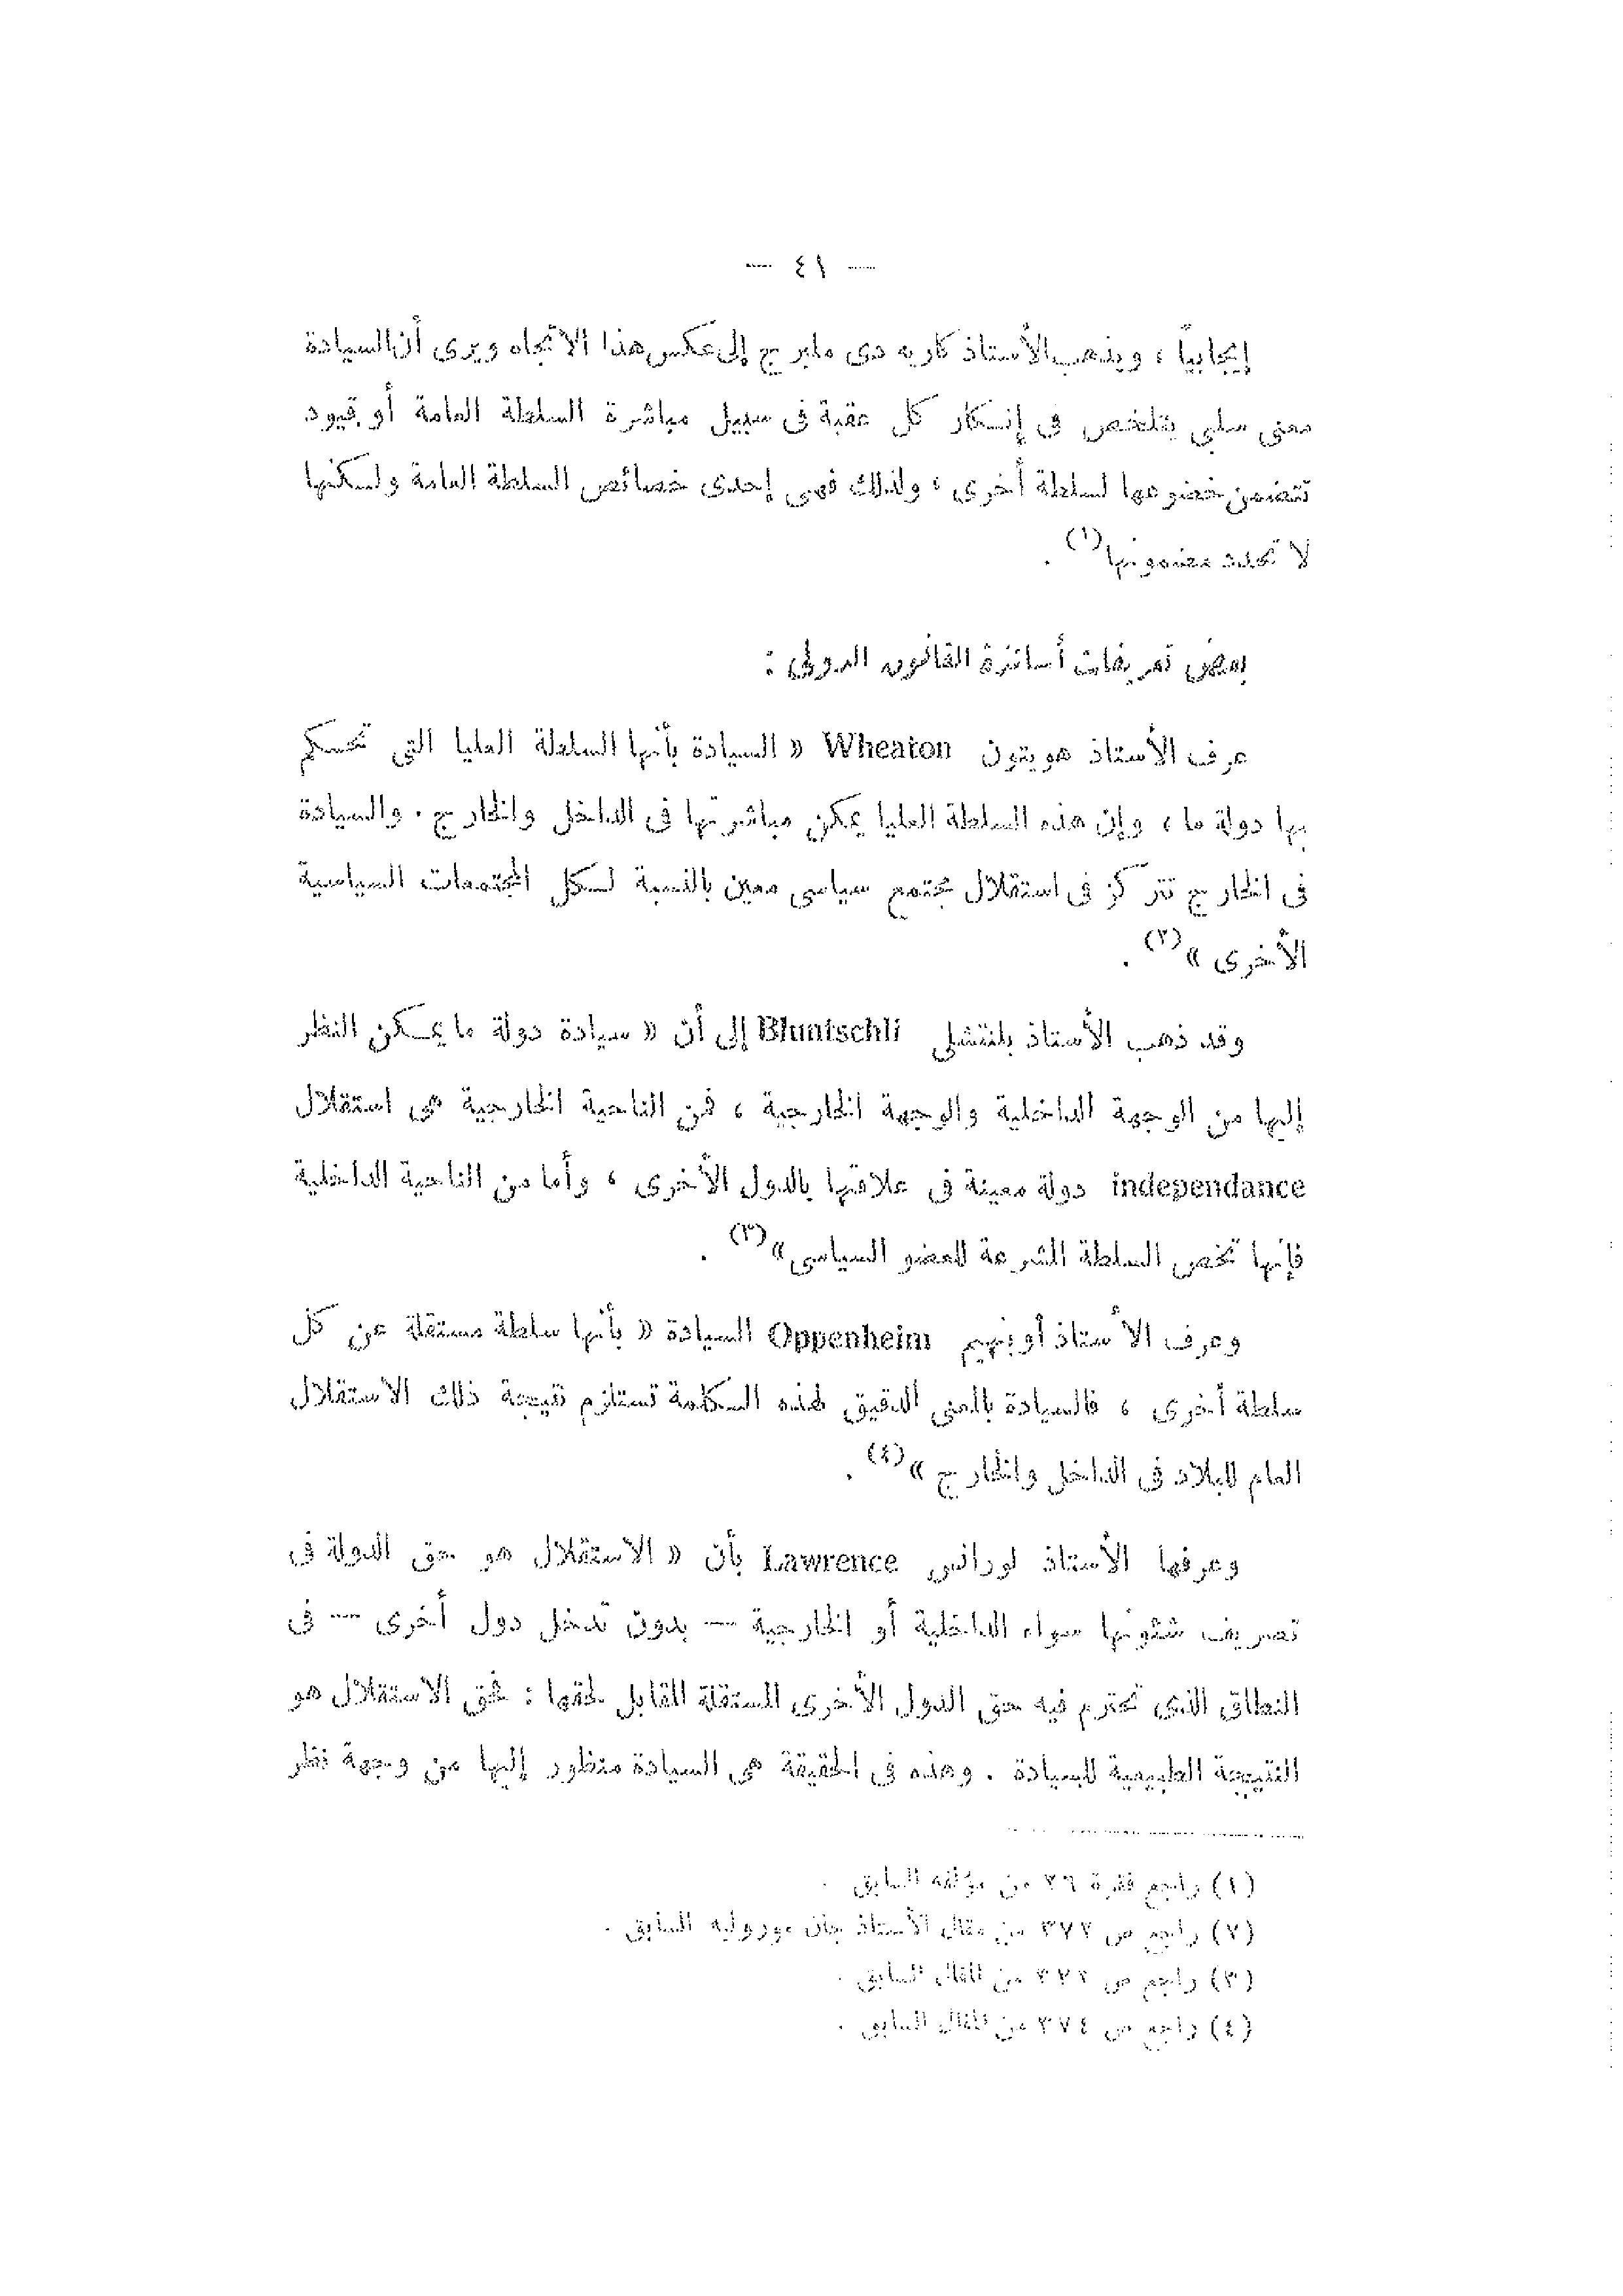 — ٤١ —
إيجابياً ، ويذهب الأستاذ كاريه دى ملبرج إلى عكس هذا الاتجاه ويرى أن السيادة
معنى سلبي يتلخص فى إنكار كل عقبة فى سبيل مباشرة السلطة العامة أو قيود
تتضمن خضوعها لسلطة أخرى ، ولذلك فهى إحدى خصائص السلطة العامة ولكنها
لا تحدد مضمونها(١) .
بعض تعريفات أساتذة القانون الدولى :
عرف الأستاذ هويتون Wheaton « السيادة بأنها السلطة العليا التى تحكم
بها دولة ما ، وإن هذه السلطة العليا يمكن مباشرتها فى الداخل والخارج . والسيادة
فى الخارج تتركز فى استقلال مجتمع سياسى معين بالنسبة لكل المجتمعات السياسية
الأخرى »(٢) .
وقد ذهب الأستاذ بلنتشلى Bluntschli إلى أن « سيادة دولة ما يمكن النظر
إليها من الوجهة الداخلية والوجهة الخارجية ، فمن الناحية الخارجية هى استقلال
independance دولة معينة فى علاقتها بالدول الأخرى ، وأما من الناحية الداخلية
فإنها تخص السلطة الشرعة للعضو السياسى»(٣) .
وعرف الأستاذ أوبنهيم Oppenheim السيادة « بأنها سلطة مستقلة عن كل
سلطة أخرى ، فالسيادة بالمعنى الدقيق لهذه الكلمة تستلزم نتيجة ذلك الاستقلال
العام للبلاد فى الداخل والخارج »(٤) .
وعرفها الأستاذ لورانس Lawrence بأن « الاستقلال هو حق الدولة فى
تصريف شئونها سواء الداخلية أو الخارجية — بدون تدخل دول أخرى — فى
النطاق الذى تحترم فيه حق الدول الأخرى المستقلة المقابل لحقها : فحق الاستقلال هو
النتيجة الطبيعية للسيادة . وهذه فى الحقيقة هى السيادة منظور إليها من وجهة نظر
(١) راجع فقرة ٢٦ من مؤلفه السابق .
(٢) راجع ص ٣٧٢ من مقال الأستاذ جان موروليه السابق .
(٣) راجع ص ٣٧٢ من المقال السابق .
(٤) راجع ص ٣٧٤ من المقال السابق .